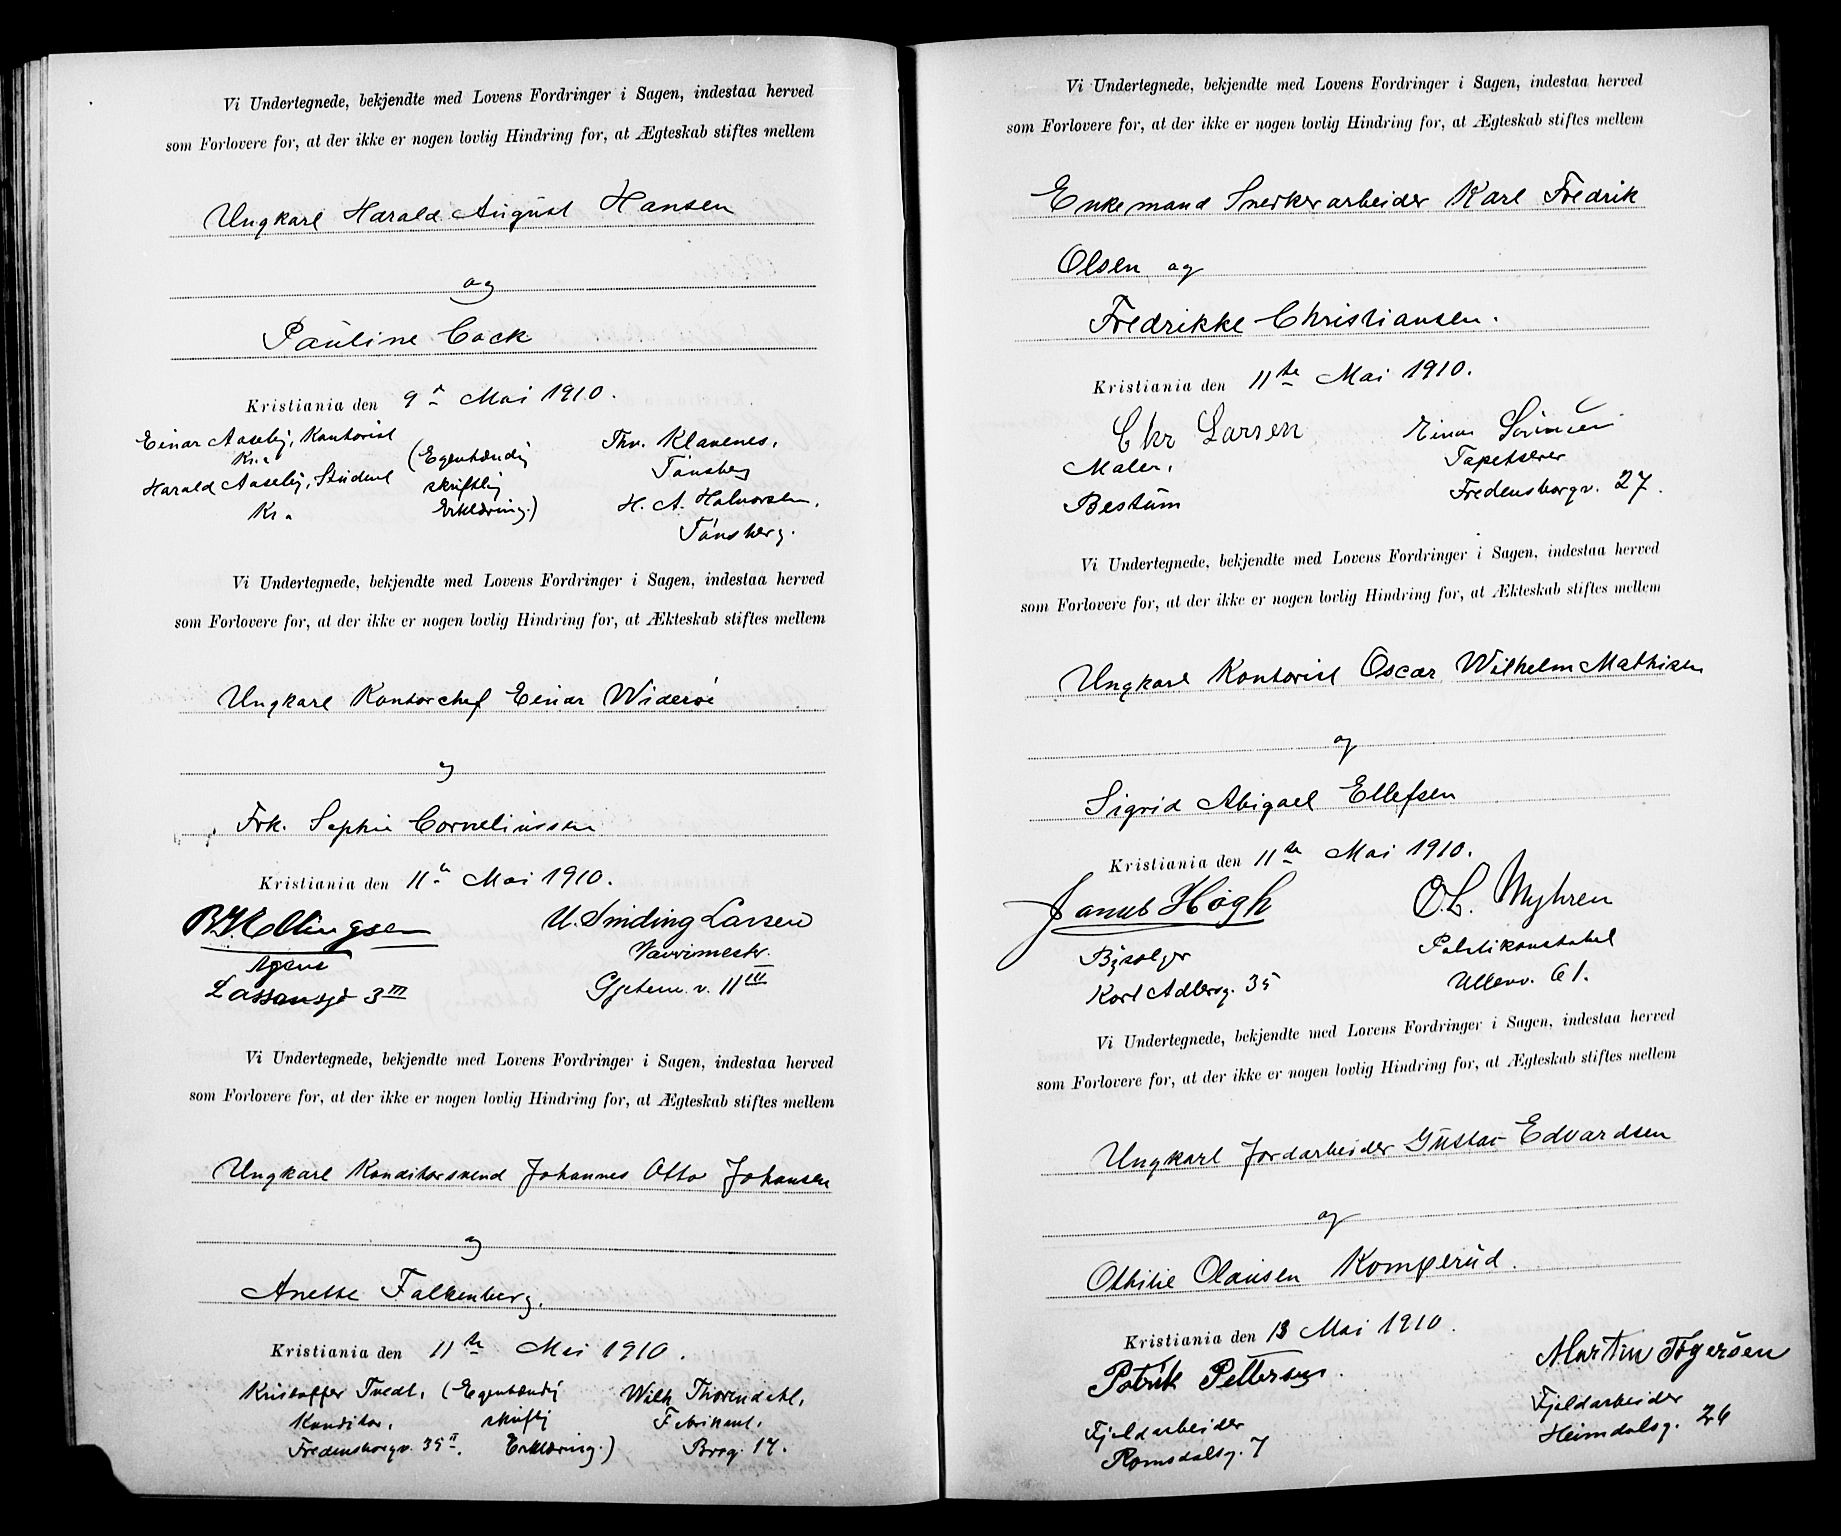 Vi Undertegnede, bekjendte med Lovens Fordringer i Sagen, indestaa herved
som Forlovere for, at der ikke er nogen lovlig Hindring for, at Ægteskab stiftes mellem
Ungkarl Harald August Hansen
og
Pauline Cock
Kristiania den 9de Mai 1910.
Einar Aaseby, Kontorist
Kr.a
Harald Aaseby, Student
Kr.a
(Egenhændig
skriftlig
Erklæring.)
Thv. Klavenes,
Tønsberg
H. A. Halvorsen,
Tønsberg.
Vi Undertegnede, bekjendte med Lovens Fordringer i Sagen, indestaa herved
som Forlovere for, at der ikke er nogen lovlig Hindring for, at Ækteskab stiftes mellem
Ungkarl Kontorchef Einar Widerøe
og
Frk. Sophie Corneliussen
Kristiania den 11te Mai 1910.
Ellingsen
Agent
Lassonsgd 3 III
U. Sinding Larsen
Gjetem. v. 11 III
Vi Undertegnede, bekjendte med Lovens Fordringer i Sagen, indestaa herved
som Forlovere for, at der ikke er nogen lovlig Hindring for, at Ægteskab stiftes mellem
Ungkarl Konditorsvend Johannes Otto Johansen
og
Anette Falkenberg.
Kristiania den 11te Mai 1910.
Kristoffer Tvedt,
Konditor,
Fredensborgv. 35 II.
(Egenhændig
skriftlig
Erklæring.)
Wilh. Thorendahl,
Fabrikant,
Brog. 17.
Vi Undertegnede, bekjendte med Lovens Fordringer i Sagen, indestaa herved
som Forlovere for, at der ikke er nogen lovlig Hindring for, at Ægteskab stiftes mellem
Enkemand Snerkerarbeider Karl Fredrik
Olsen og
Fredrikke Christiansen.
Kristiania den 11te Mai 1910.
Chr Larsen
Maler,
Bestum
Einar Sørensen
Tapetserer
Fredensborgv. 27.
Vi Undertegnede, bekjendte med Lovens Fordringer i Sagen, indestaa herved
som Forlovere for, at der ikke er nogen lovlig Hindring for, at Ækteskab stiftes mellem
Ungkarl Kontorist Oscar Wilhelm Mathisen
og
Sigrid Abigael Ellefsen
Kristiania den 11te Mai 1910.
Jonas Høgh
Bysælger
Karl Adlersg. 35
O. L. Myhren
Politikonstabel
Ullenv. 61.
Vi Undertegnede, bekjendte med Lovens Fordringer i Sagen, indestaa herved
som Forlovere for, at der ikke er nogen lovlig Hindring for, at Ægteskab stiftes mellem
Ungkarl Jordarbeider Gustav Edvardsen
og
Othilie Olausen Komperud.
Kristiania den 13 Mai 1910.
Patrik Pettersen.
Fjeldarbeider
Romsdalsg. 7
Martin Tøgersen
Fjeldarbeider
Heimdalsg. 26